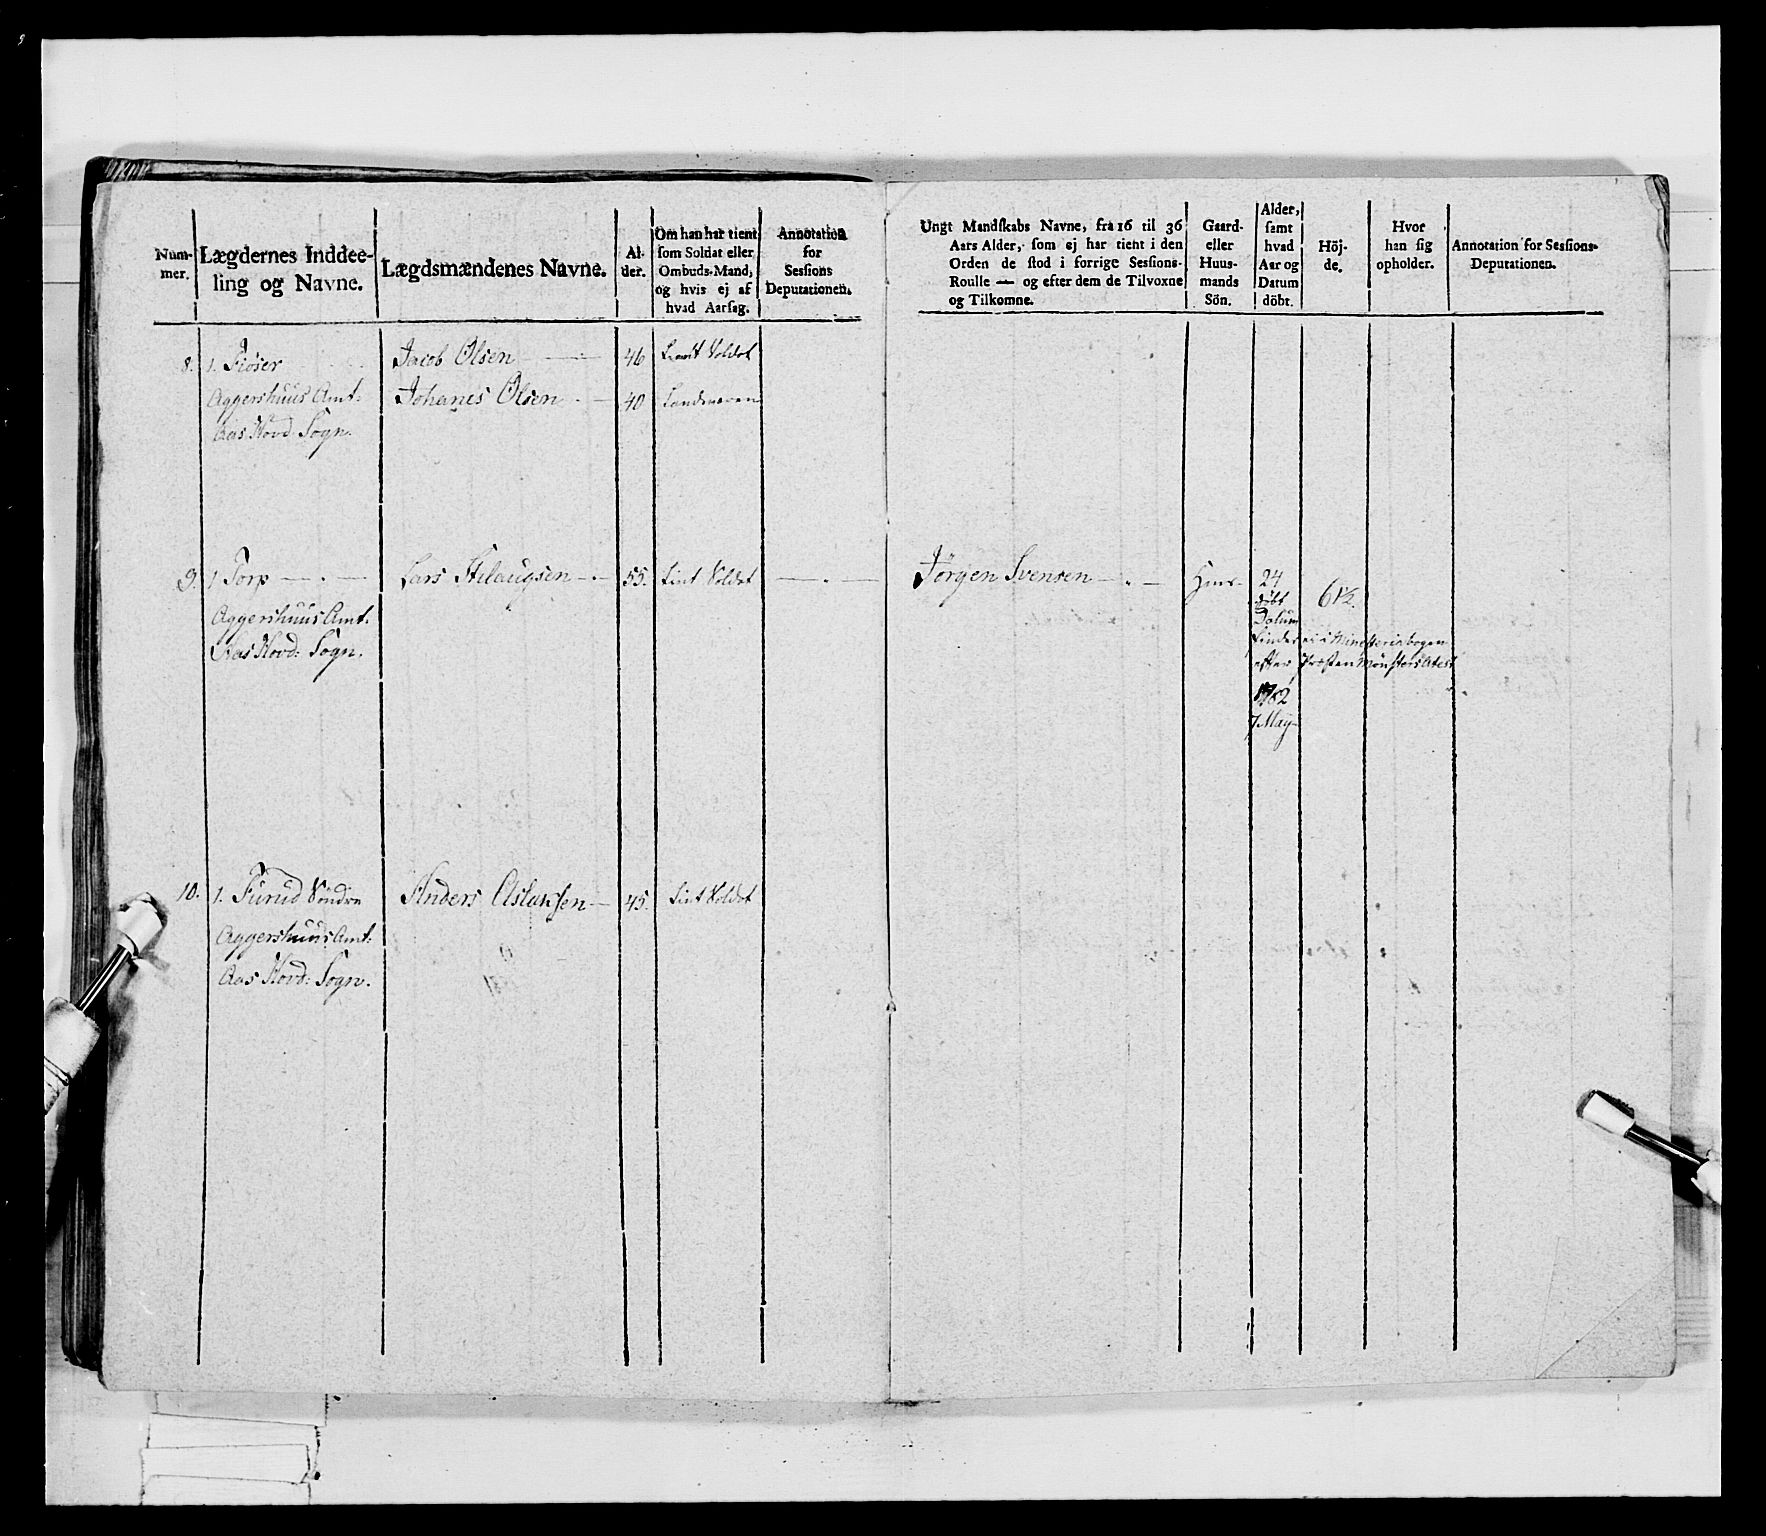 Num-
mer.
Lægdernes Inddee-
ling og Navne.
Lægdsmændenes Navne.
Al-
der.
Om han har tient
som Soldat eller
Ombuds-Mand,
og hvis ej af
hvad Aarsag.
Annotation
for
Sessions
Deputationen.
Ungt Mandskabs Navne, fra 16 til 36
Aars Alder, som ej har tient i den
Orden de stod i forrige Sessions-
Roulle — og efter dem de Tilvoxne
og Tilkomne.
Gaard-
eller
Huus-
mands
Sön.
Alder,
samt
hvad
Aar og
Datum
döbt.
Höj-
de.
Hvor
han sig
opholder.
Annotation for Sessions-
Deputationen.
8. 1. Fiöser Jacob Olsen 46 Soldat
Aggershuus Amt: Johanes Olsen 40 Landværen
Aas Hovd: Sogn.
9. 1 Torp Lars 55. tient Soldat Jörgen Svensen Huus 24 6 1/2.
Aggershuus Amt. döbt
Datum
Aas Hovd: Sogn. findes ei i Ministerialbogen
efter Præsten Mönsters Atest
1782
7 May
10. 1. Furud Söndre Anders Aslaksen 45. tient Soldat
Aggershuus Amt:
Aas Hovd: Sogn.